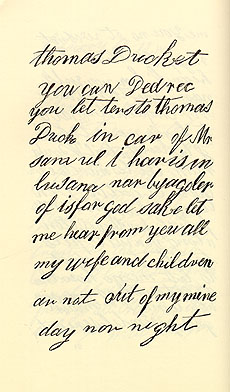 thomas Ducket
you can Dedrec
you let ters to thomas
Duck in car of Mr
sam ul i haris in
lusana nar byagoler
of is for god sake let
me hear from you all
my wife and children
ar not out of my mine
day nor night